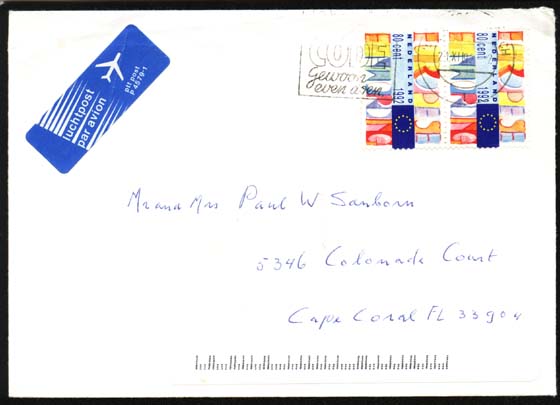 luchtpost
par avion
ptt post
P 4579-1
Gewoon
even apen.
80 cent
NEDERLAND
1992
80 cent
NEDERLAND
1992
Mr and Mrs Paul W Sanborn
5346 Colonade Court
Cape Coral FL 33904